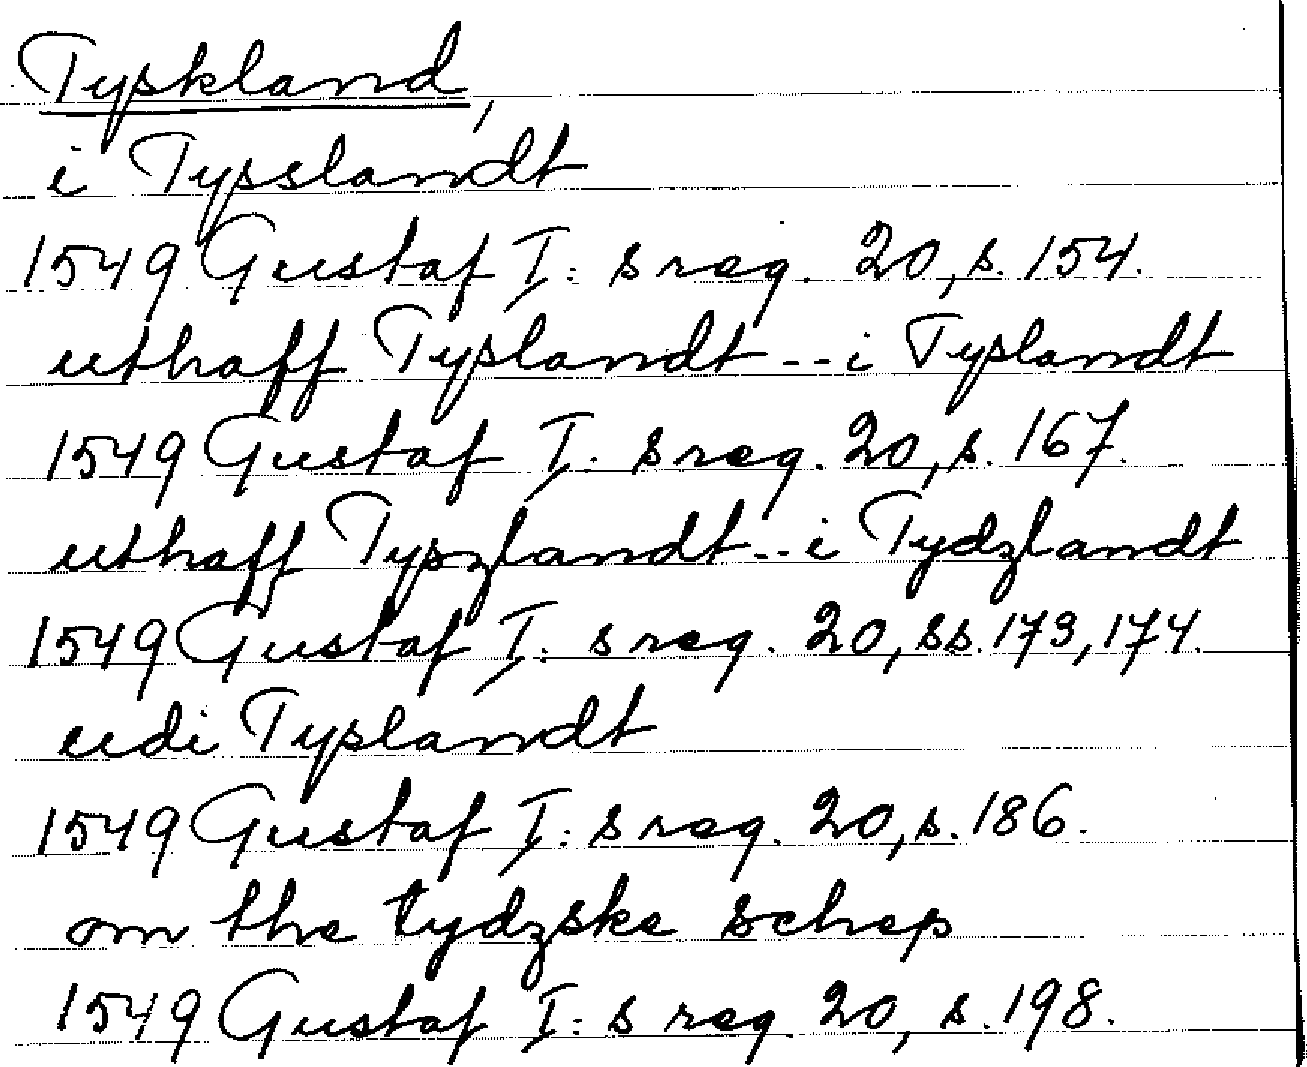 Tyskland,
i Tysslandt
1549 Gustaf I: s reg. 20, s. 154.
uthaff Tyslandt -- i Tyslandt
1549 Gustaf I: s reg. 20, s. 167.
uthaff Tyszlandt -- i Tydzlandt
1549 Gustaf I: s reg. 20, ss. 173, 174.
udi Tyslandt
1549 Gustaf I: s reg. 20, s. 186.
om the tydzske schep
1549 Gustaf I: s reg. 20, s. 198.